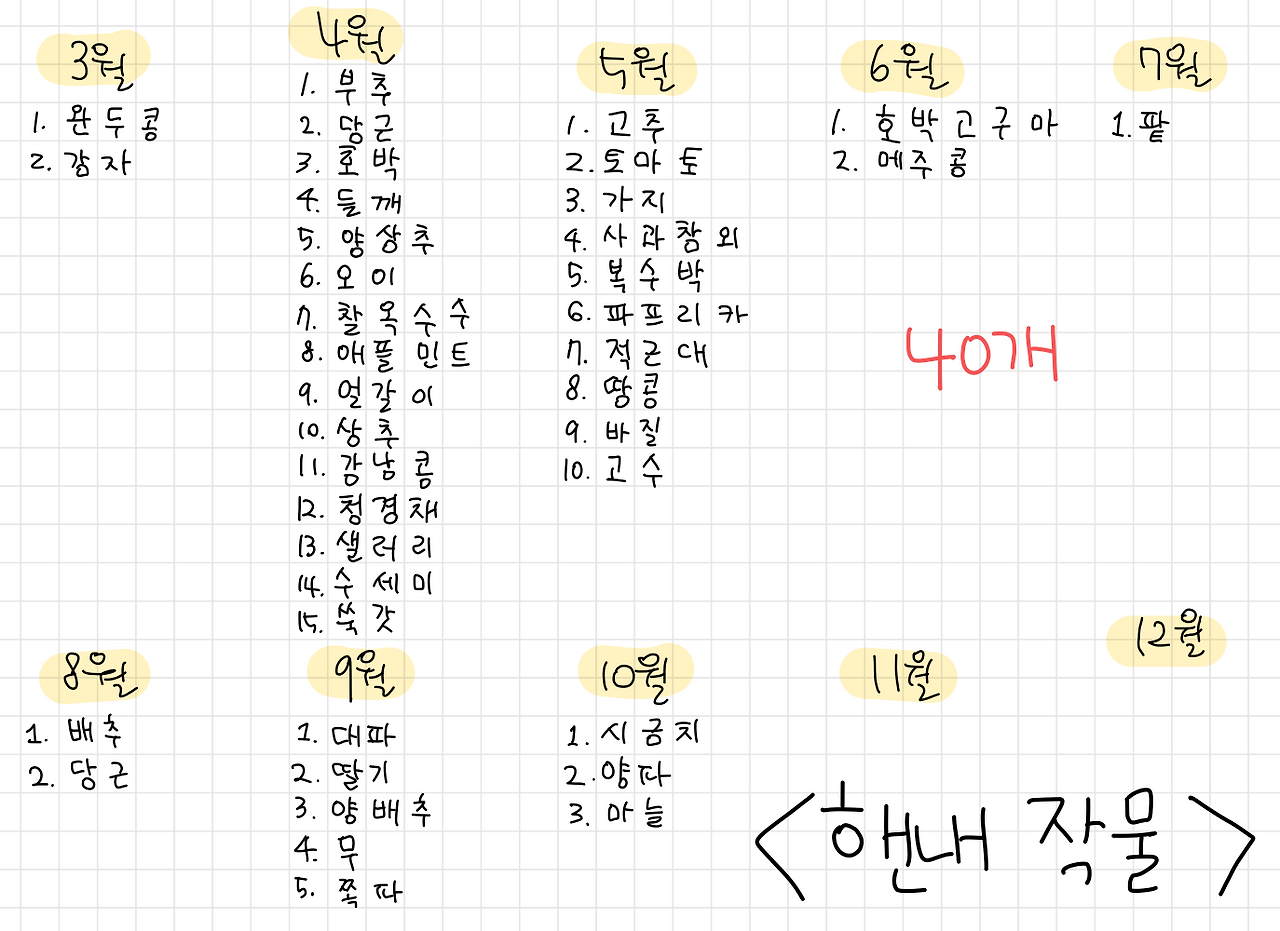 3월
1. 완두콩
2. 감자
4월
1. 부추
2. 당근
3. 호박
4. 들깨
5. 양상추
6. 오이
7. 찰옥수수
8. 애플민트
9. 얼갈이
10. 상추
11. 강남콩
12. 청경채
13. 샐러리
14. 수세미
15. 쑥갓
5월
1. 고추
2. 토마토
3. 가지
4. 사과참외
5. 복수박
6. 파프리카
7. 적근대
8. 땅콩
9. 바질
10. 고수
6월
1. 호박고구마
2. 메주콩
7월
1. 팥
40개
8월
1. 배추
2. 당근
9월
1. 대파
2. 딸기
3. 양배추
4. 무
5. 쪽파
10월
1. 시금치
2. 양파
3. 마늘
11월
12월
<한내 작물>